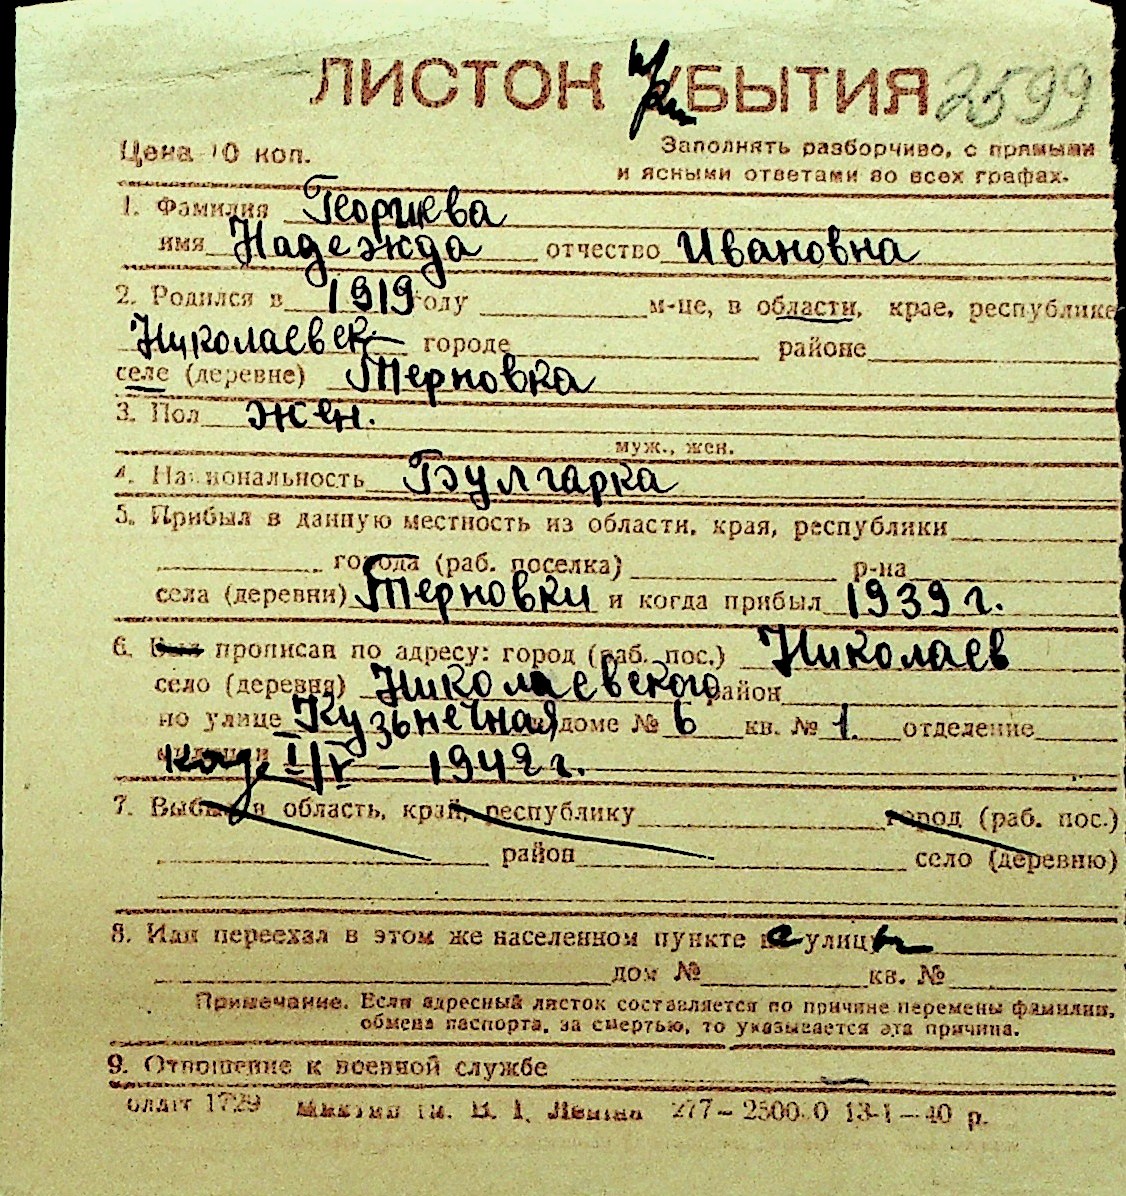 ЛИСТОН УБЫТИЯ 2599
Цена 10 коп.
Заполнять разборчиво, с прямыми
и ясными ответами во всех графах.
1. Фамилия Георгиева
имя Надежда отчество Ивановна
2. Родился в 1919 году м-це, в области, крае, республике
Николаевск городе районе
селе (деревне) Терновка
3. Пол жен.
муж., жен.
4. Национальность Булгарка
5. Прибыл в данную местность из области, края, республики
города (раб. поселка) р-на
села (деревни) Терновки и когда прибыл 1939 г.
6. Был прописан по адресу: город (раб. пос.) Николаев
село (деревня) Николаевского район
по улице Кузьнечная доме № 6 кв. № 1 отделение
I/V - 1942 г.
7. Выбыл в область, край, республику город (раб. пос.)
район село (деревню)
8. Или переехал в этом же населенном пункте с улицы
дом № кв. №
Примечание. Если адресный листок составляется по причине перемены фамилии,
обмена паспорта, за смертью, то указывается эта причина.
9. Отношение к военной службе
1729 им. В. І. Леніна 277-2500.0 13-1-40 р.